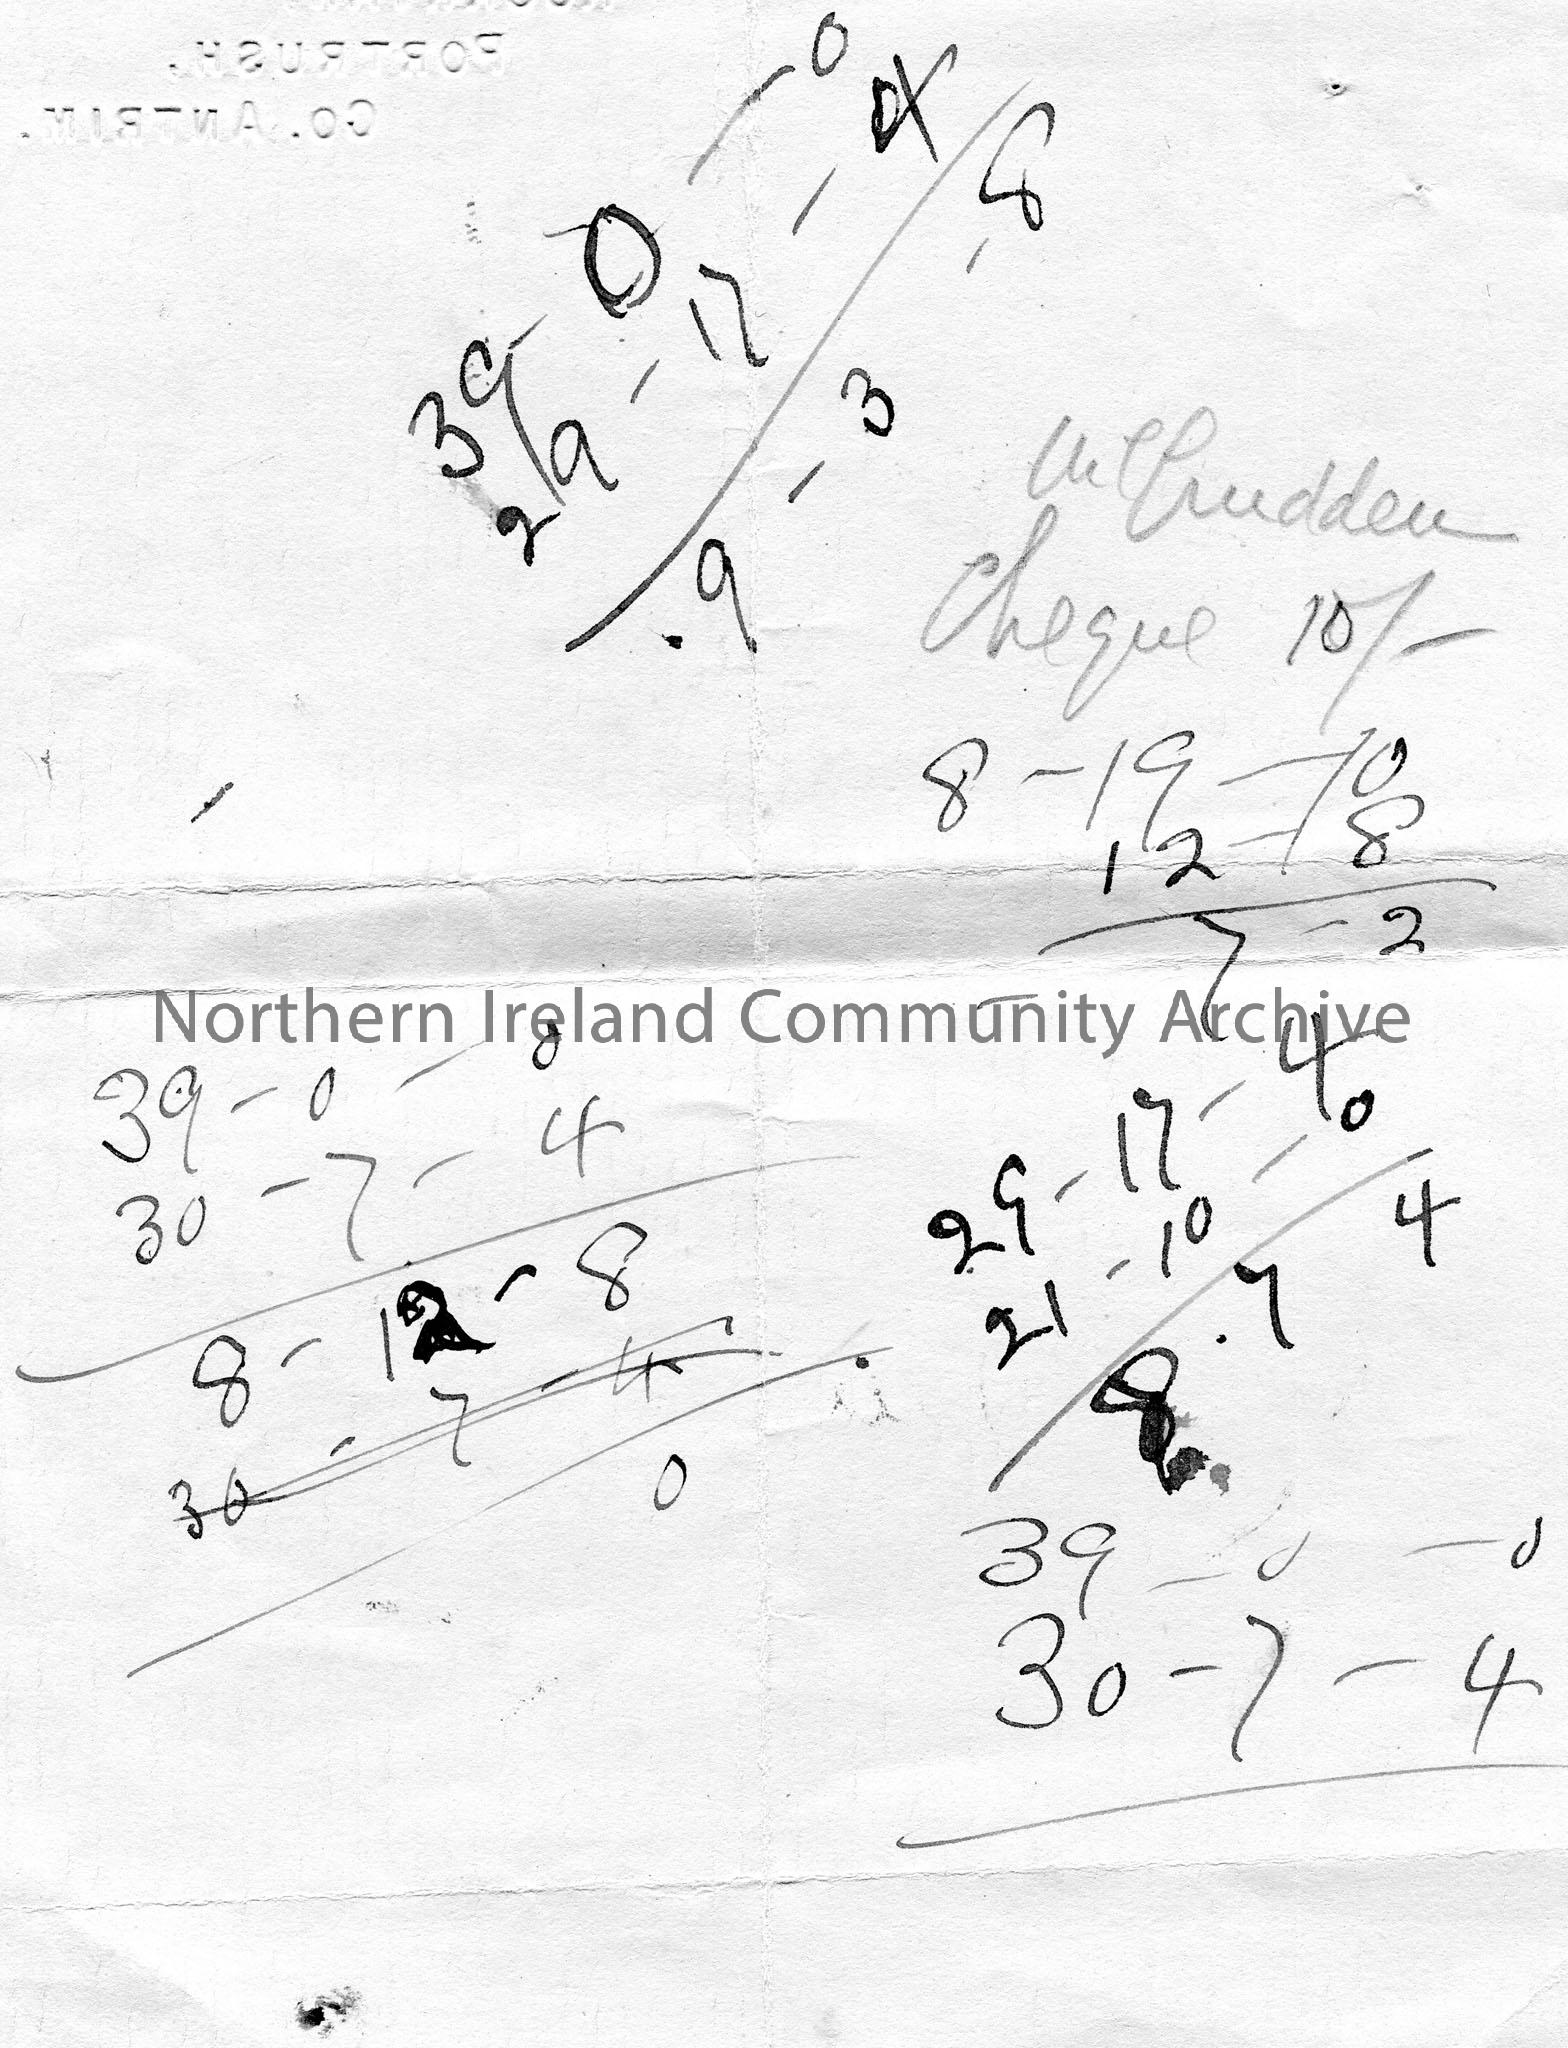 PORTRUSH.
CO. ANTRIM.
39 - 0 - 0
29 - 17 - 4
9 - 3 - 8
McCrudden
Cheque 10/-
8 - 19 - 10
12 - 8
7 - 2
Northern Ireland Community Archive
39 - 0 - 0
30 - 7 - 4
8 - 12 - 8
30 - 7 - 4
0
29 - 17 - 4
21 - 10 - 0
8 . 7 4
39 - 0 - 0
30 - 7 - 4